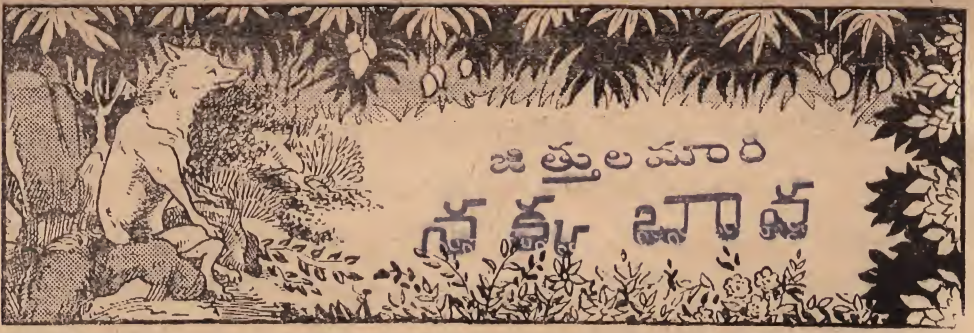 జిత్తులమారి
నక్క బావ